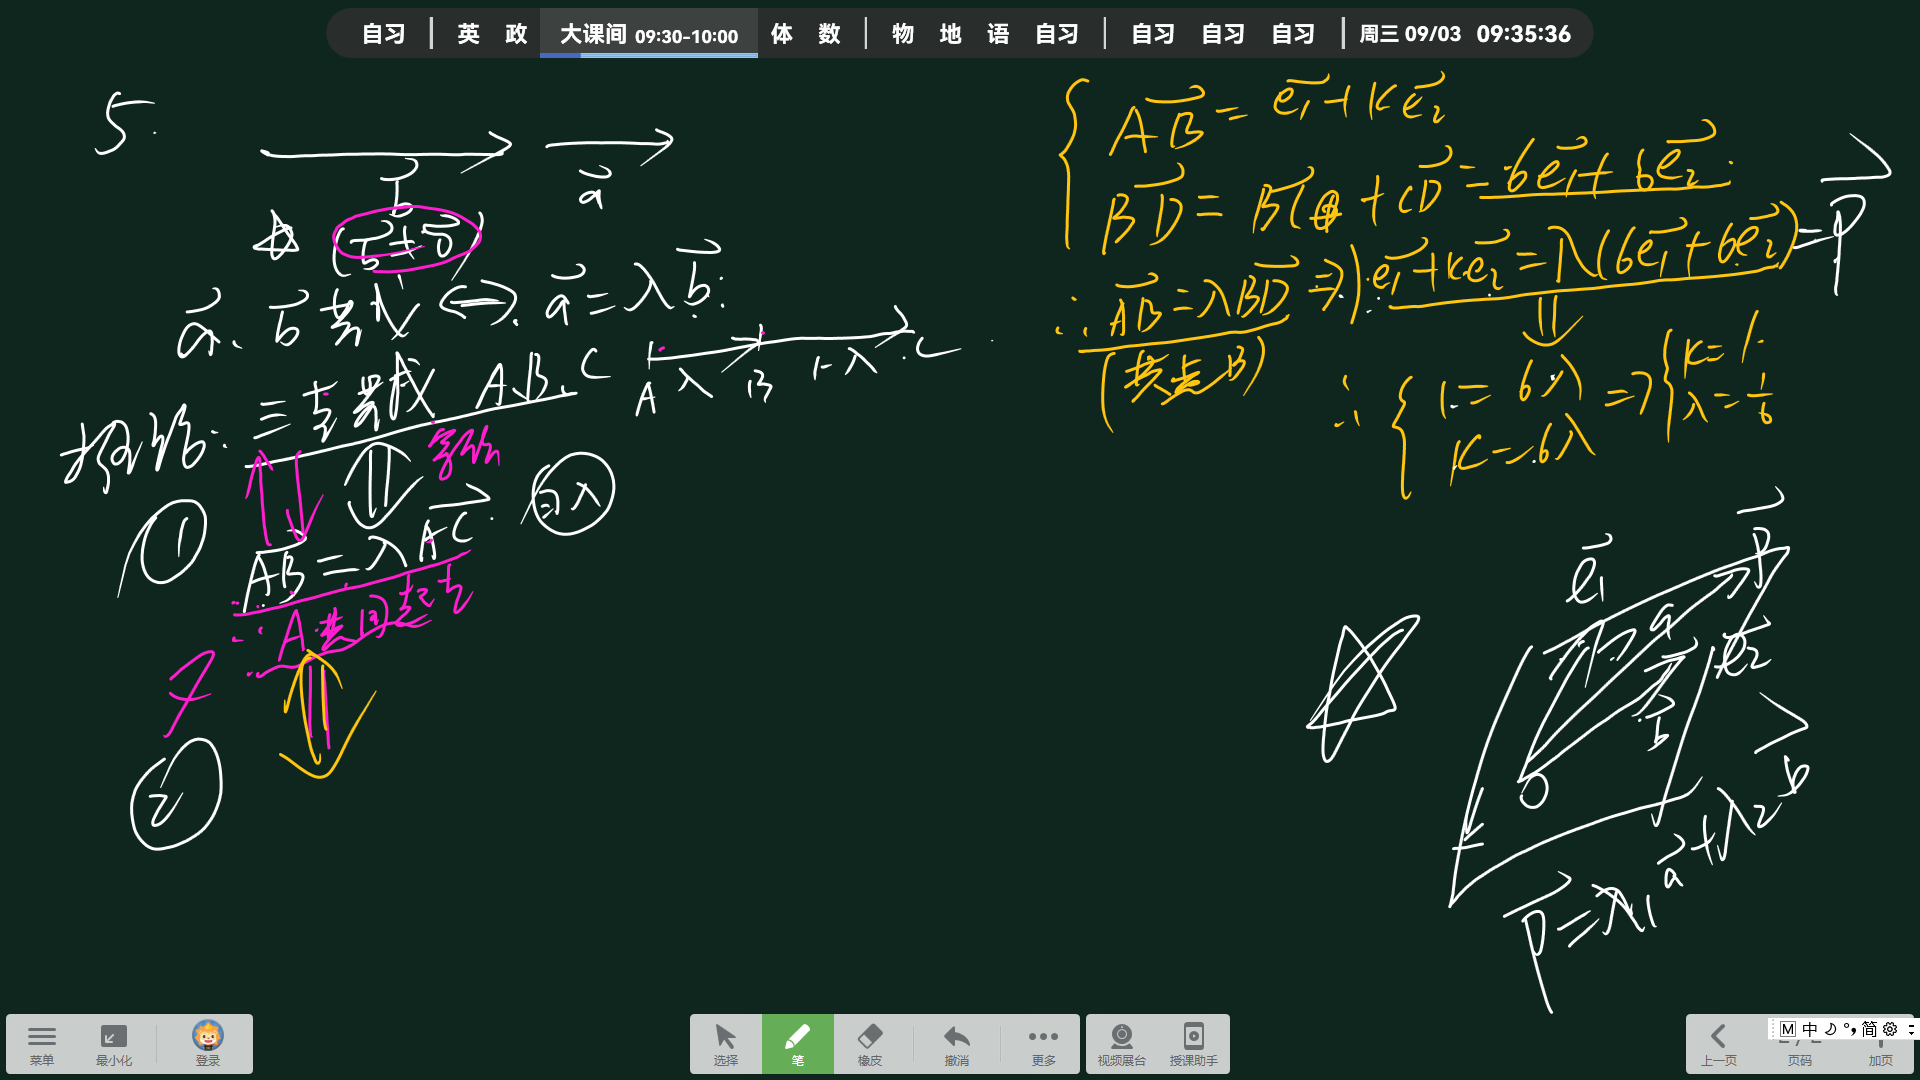 自习 | 英 政 大课间 09:30-10:00 体 数 | 物 地 语 自习 | 自习 自习 自习 | 周三 09/03 09:35:36
5.
b⃗ a⃗
(b⃗ ≠ 0⃗)
a⃗、b⃗ 共线 ⇔ a⃗ = λb⃗
A λ B 1-λ C
推论: 三点共线 A、B、C
①
AB⃗ = λAC⃗ ∃λ
∴ A 共同起点
②
AB⃗ = e₁⃗ + ke₂⃗
BD⃗ = BC⃗ + CD⃗ = 6e₁⃗ + 6e₂⃗
∴ AB⃗ = λBD⃗ ⇒ e₁⃗ + ke₂⃗ = λ(6e₁⃗ + 6e₂⃗) = P⃗
(共点B)
∴ { 1 = 6λ ⇒ { k = 1
k = 6λ λ = 1/6
e₁⃗ P⃗
a⃗ e₂⃗
b⃗
O
p⃗ = λ₁a⃗ + λ₂b⃗
菜单 最小化 登录 选择 笔 橡皮 撤消 更多 视频展台 授课助手 上一页 页码 加页
M 中 简